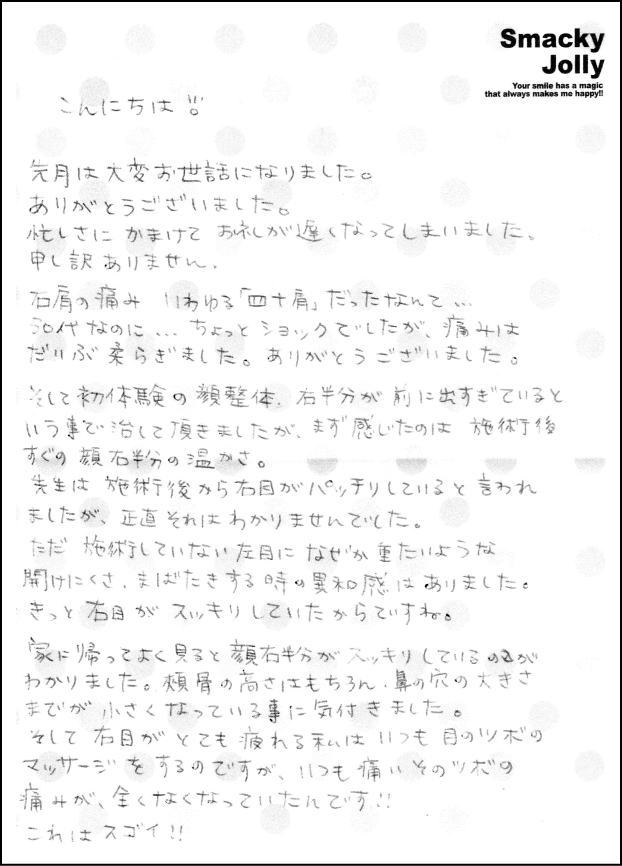 Smacky
Jolly
Your smile has a magic
that always makes me happy!!
こんにちは
先月は大変お世話になりました。
ありがとうございました。
忙しさに かまけて お礼が遅くなってしまいました。
申し訳ありません。
右肩の痛み いわゆる「四十肩」だったなんて…
30代なのに… ちょっとショックでしたが、痛みは
だいぶ柔らぎました。ありがとうございました。
そして初体験の顔整体。右半分が前に出すぎていると
いう事で治して頂きましたが、まず感じたのは 施術後
すぐの顔右半分の温かさ。
先生は 施術後から右目がパッチリしていると言われ
ましたが、正直それはわかりませんでした。
ただ 施術していない左目に なぜか重たいような
開けにくさ、まばたきする時の異和感はありました。
きっと 右目が スッキリしていたからですね。
家に帰ってよく見ると顔右半分がスッキリしているのが
わかりました。頬骨の高さはもちろん、鼻の穴の大きさ
までが 小さくなっている事に気付きました。
そして 右目が とても疲れる私は いつも目のツボの
マッサージをするのですが、いつも痛いそのツボの
痛みが、全くなくなっていたんです!!
これはスゴイ!!